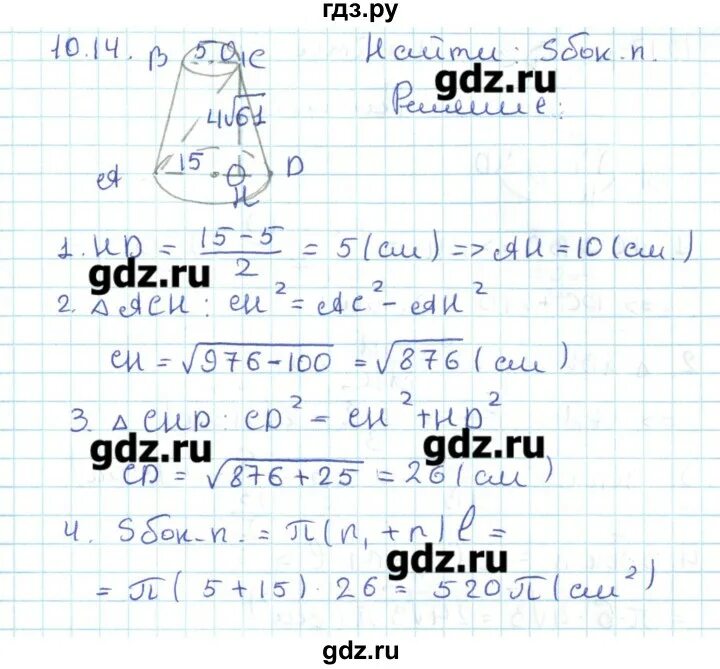 гдз.ру
10.14. B 5 O₁ C Найти: Sбок.п.
gdz.ru
4√61 Решение:
A 15 O D
H
1. HD = (15-5)/2 = 5 (см) => AH = 10 (см.)
gdz.ru
2. △ ACH : CH² = AC² - AH²
CH = √976-100 = √876 (см)
3. △ CHD : CD² = CH² + HD²
gdz.ru gdz.ru
CD = √876+25 = 26 (см)
4. Sбок.п. = π(r₁ + r) l =
gdz.ru
= π(5+15) · 26 = 520π (см²)
gdz.ru